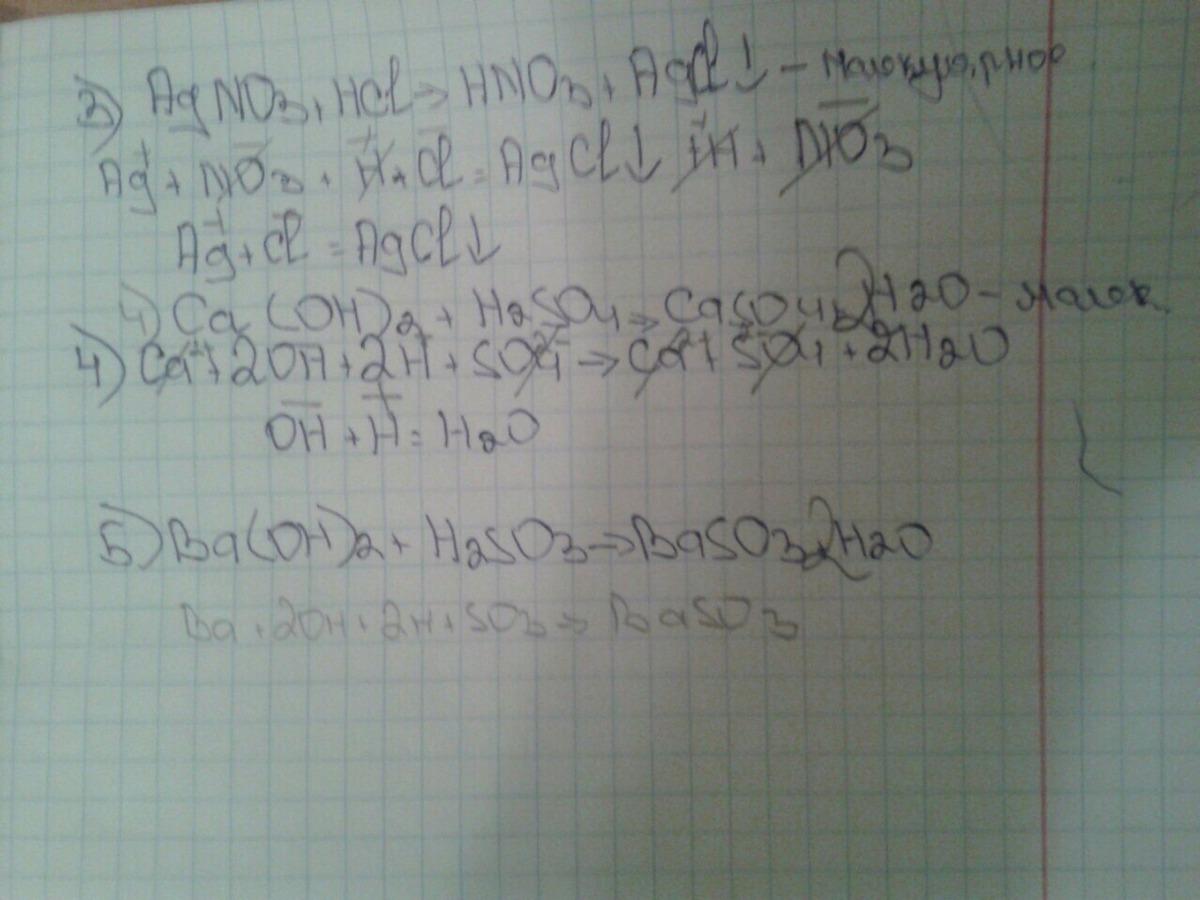 3) AgNO3 + HCl → HNO3 + AgCl↓ – Малекулярное
Ag⁺ + NO3⁻ + H⁺ + Cl⁻ = AgCl↓ + H⁺ + NO3⁻
Ag⁺ + Cl⁻ = AgCl↓
4) Ca(OH)2 + H2SO4 → CaSO4 + 2H2O – малек.
4) Ca²⁺ + 2OH⁻ + 2H⁺ + SO4²⁻ → Ca²⁺ + SO4²⁻ + 2H2O
OH⁻ + H⁺ = H2O
5) Ba(OH)2 + H2SO3 → BaSO3 + 2H2O
Ba + 2OH + 2H + SO3 → BaSO3